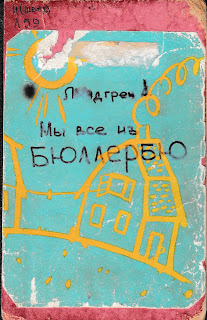 Линдгрен А
Мы все изъ
БЮЛЛЕРБЮ